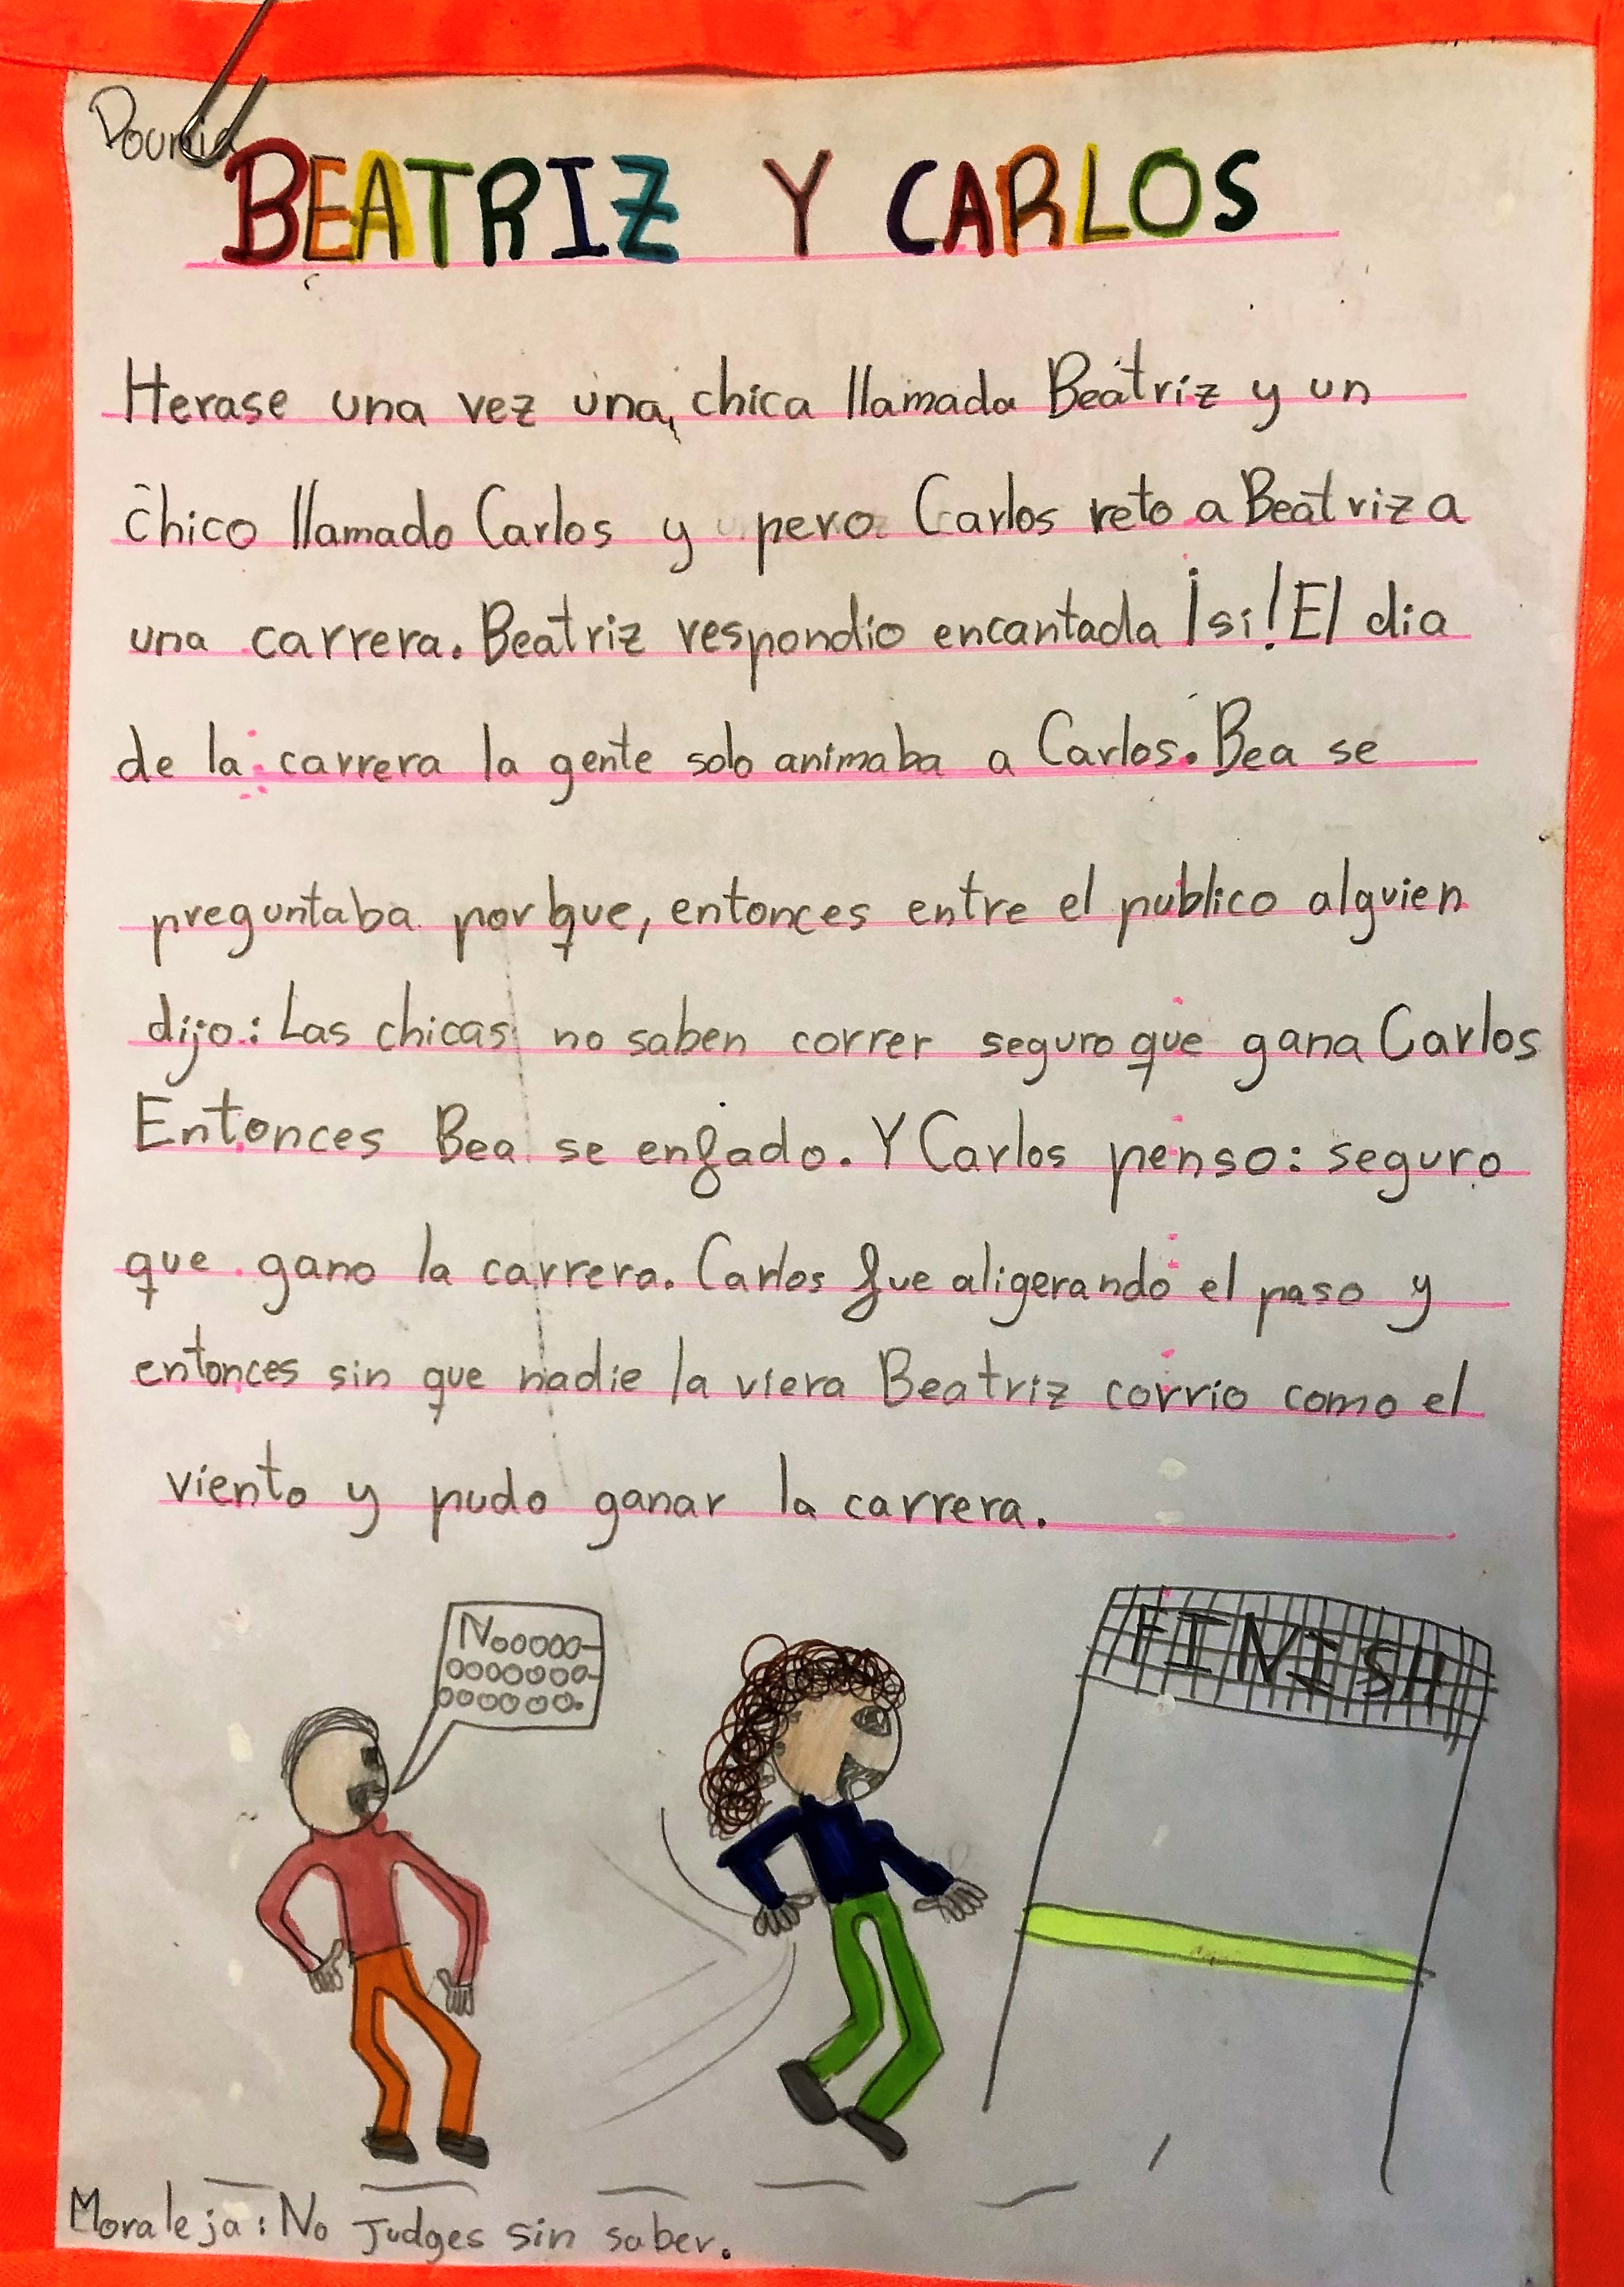 Dounia
BEATRIZ Y CARLOS
Herase una vez una chica llamada Beatriz y un
chico llamado Carlos y pero Carlos reto a Beatriz a
una carrera. Beatriz respondio encantada ¡si! El dia
de la carrera la gente solo animaba a Carlos. Bea se
preguntaba porque, entonces entre el publico alguien
dijo: Las chicas no saben correr seguro que gana Carlos
Entonces Bea se enfado. Y Carlos penso: seguro
que gano la carrera. Carlos fue aligerando el paso y
entonces sin que nadie la viera Beatriz corrio como el
viento y pudo ganar la carrera.
Nooooo-
ooooooo-
ooooooo.
FINISH
Moraleja: No Judges sin saber.